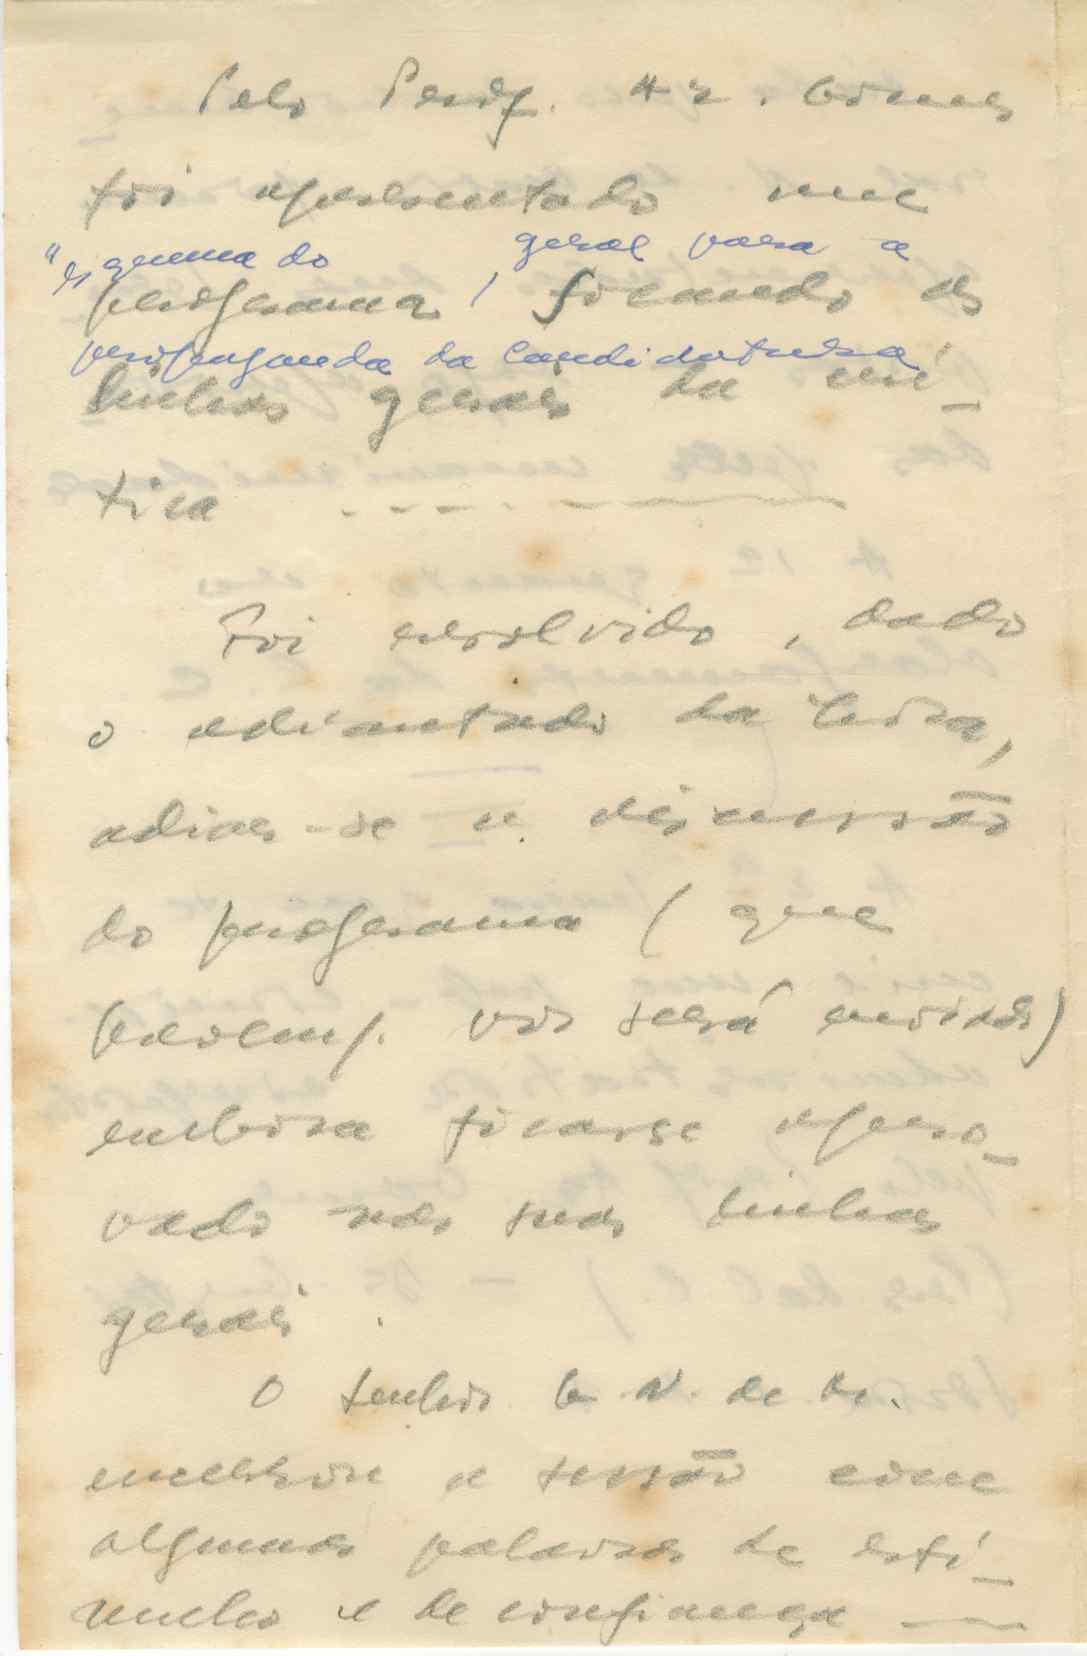 Pelo Prof. Az. Gomes
foi apresentado um
"esquema do geral para a
programa, focando as
propaganda da candidatura,
linhas gerais da
tica
Foi resolvido, dado
o adiantado da hora,
adiar-se a discussão
do programa (que
vos será enviado)
embora ficasse apro-
vado nas suas linhas
gerais.
O senhor G. N. de M.
encerrou a sessão com
algumas palavras de estí-
mulo e de confiança —